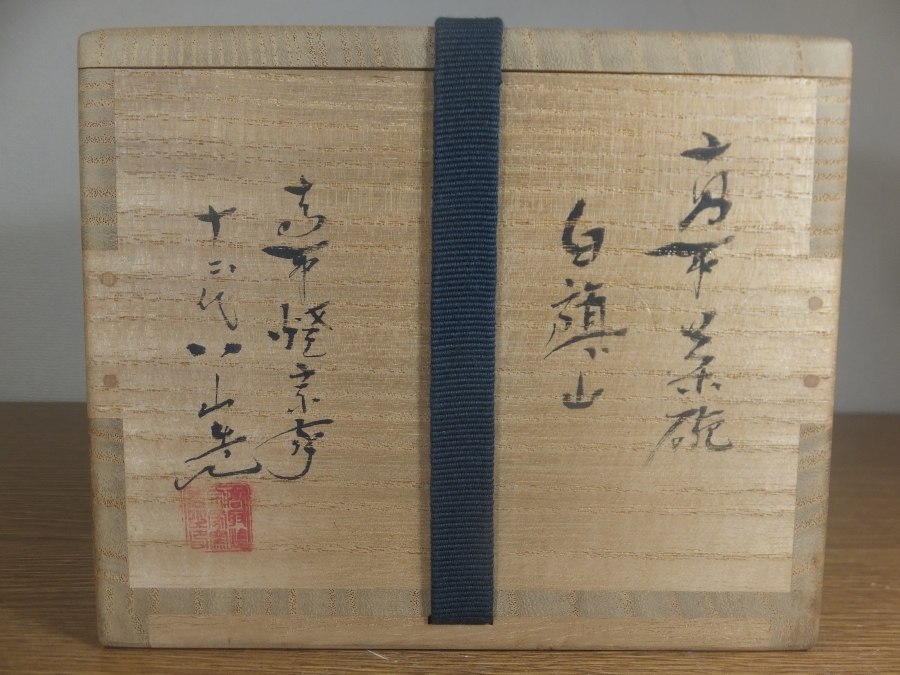 高取茶碗
白旗山
高取焼宗家
十二代八山造